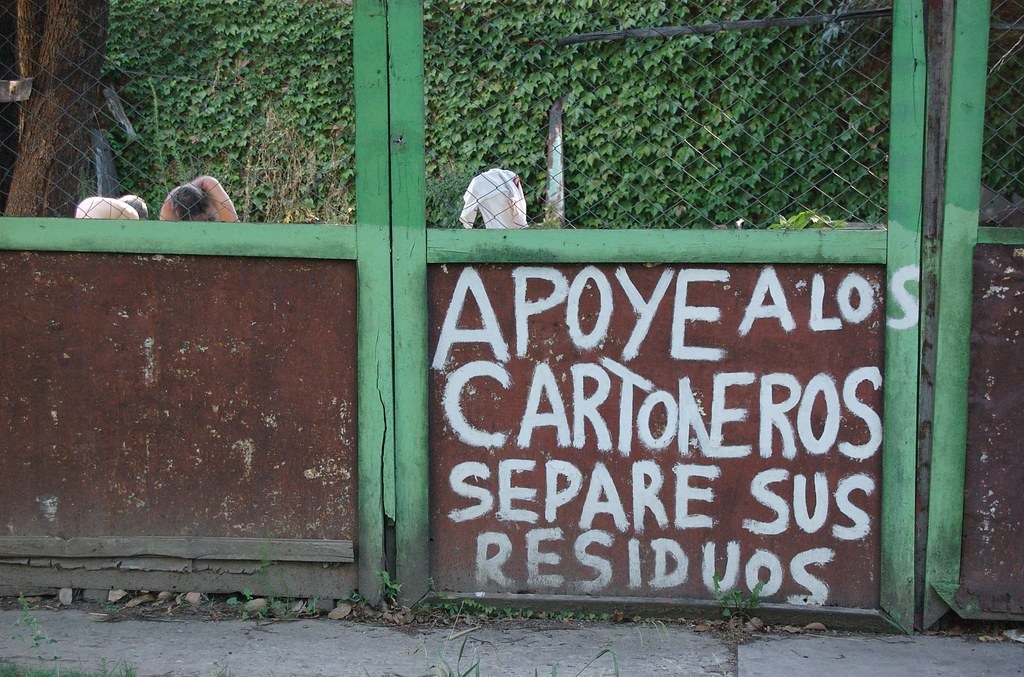 APOYE A LOS
CARTONEROS
SEPARE SUS
RESIDUOS